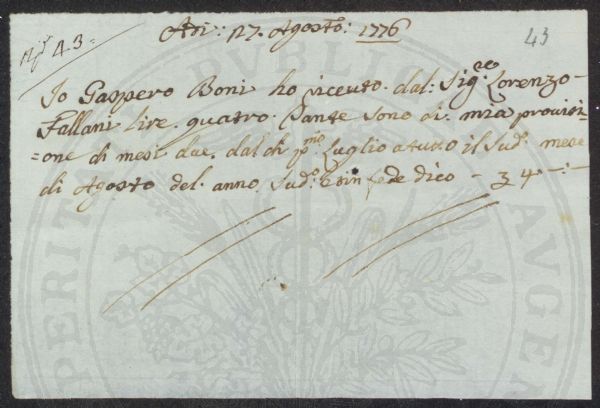 Adi: 27. Agosto: 1776
43
No 43=
Io Gaspero Boni ho riceuto. dal: Sig:re Lorenzo
Fallani Lire. quatro. Dante sono di. mia provisi=
=one di mesi due. dal di p:mo Luglio a tutto il Sud: mese
di Agosto del. anno. Sud:o e in fede dico - 4 -:-
PERITAT PVBLICAE AVGEN